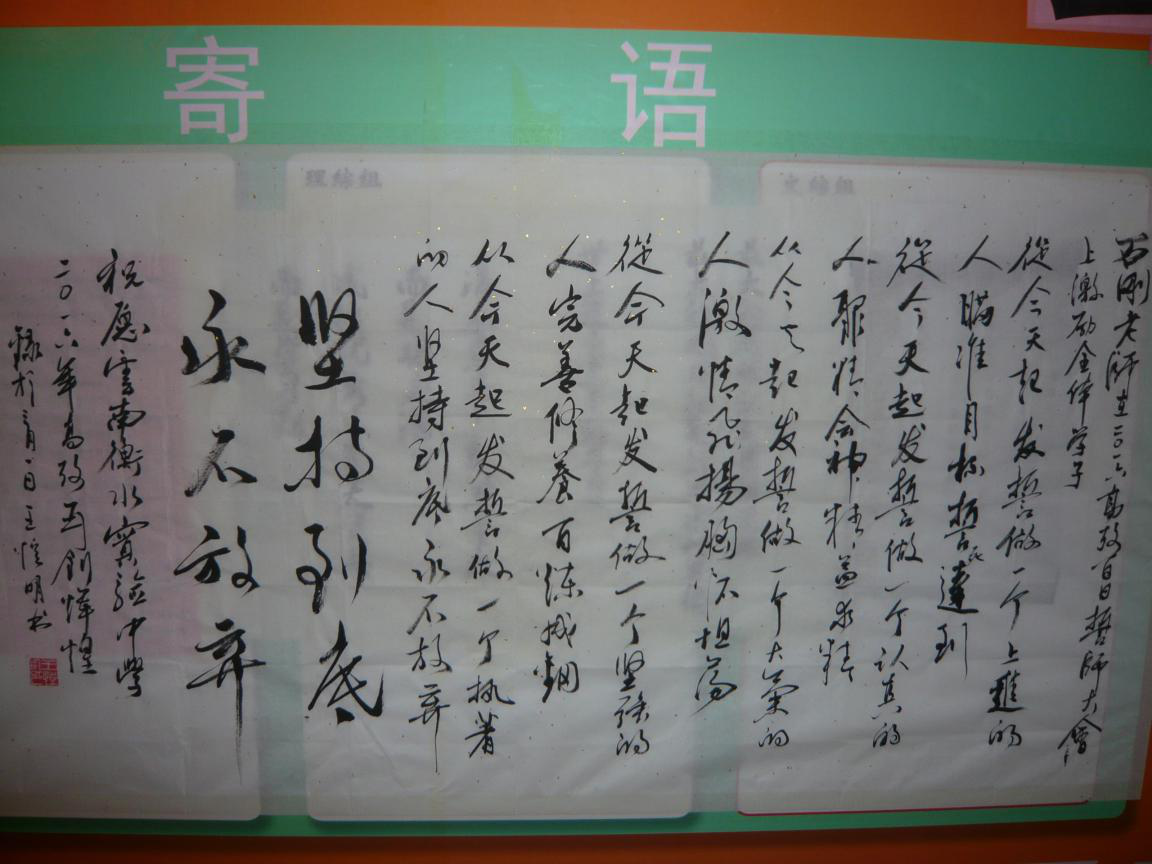 寄语
理综组
文综组
石刚老师在二〇一六高考百日誓师大會
上激励全体学子
從今天起发誓做一个上進的
人瞄准目标誓达到
從今天起发誓做一个认真的
人聚精会神精益求精
从今天起发誓做一个大气的
人激情飛揚胸怀坦荡
從今天起发誓做一个坚强的
人完善修養百炼成鋼
从今天起发誓做一个执著
的人坚持到底永不放弃
坚持到底
永不放弃
祝愿雲南衡水實验中學
二〇一六年高考再创辉煌
録於三月一日王恒明书